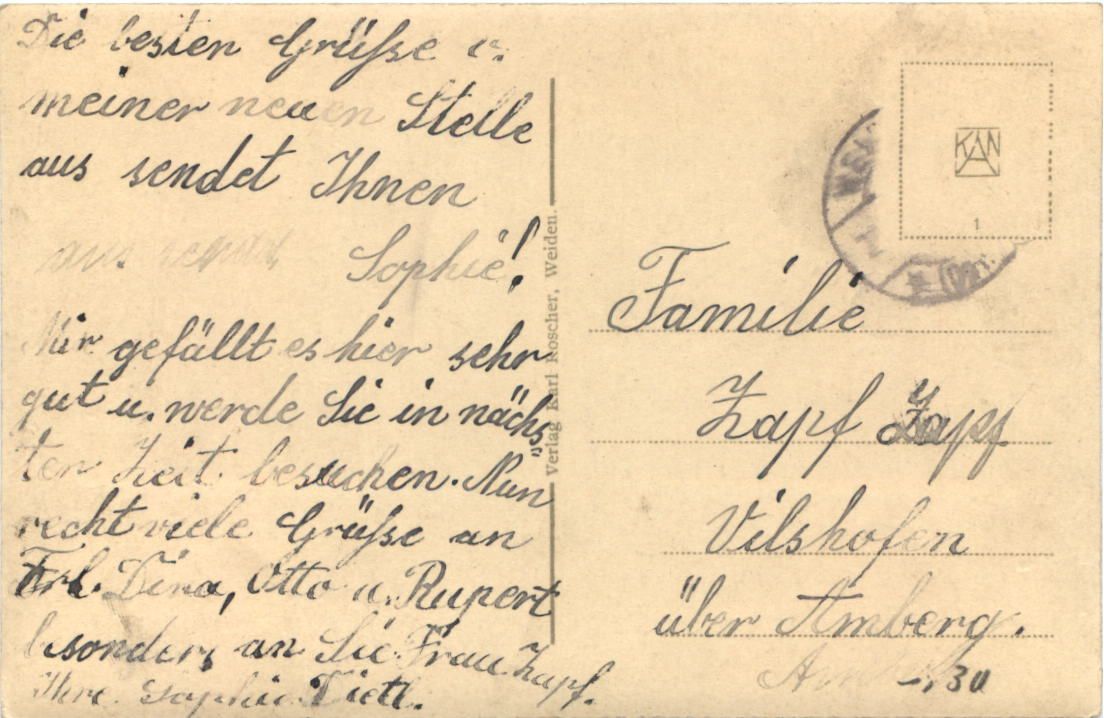 Die besten Grüße v.
meiner neuen Stelle
aus sendet Ihnen
Sophie!
Mir gefällt es hier sehr
gut u. werde Sie in nächs
ten Zeit besuchen. Nun
recht viele Grüße an
Frl. Dina, Otto u. Rupert
besonders an Sie Frau Zapf.
Ihre Sophie Dietl.
Verlag Karl Roscher, Weiden.
KAN
1
Familie
Zapf Zapf
Vilshofen
über Amberg.